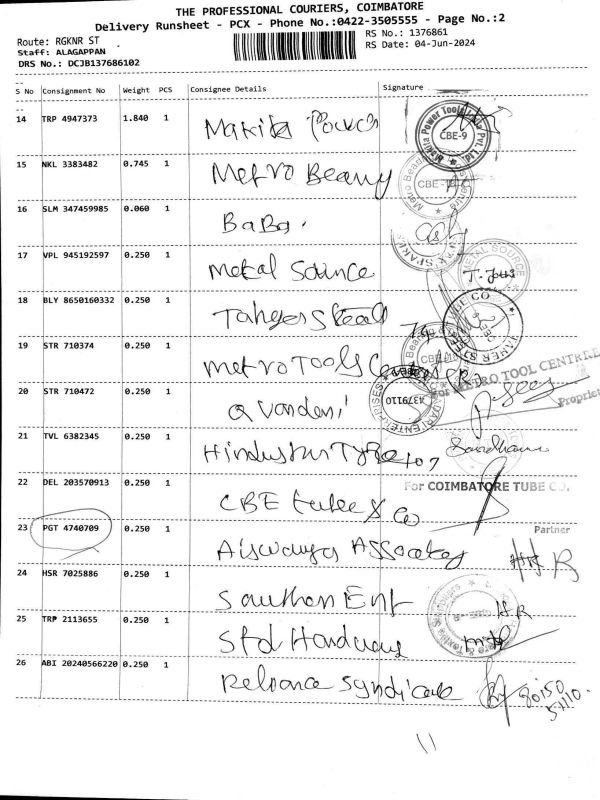 THE PROFESSIONAL COURIERS, COIMBATORE
Delivery Runsheet - PCX - Phone No.:0422-3505555 - Page No.:2
Route: RGKNR ST
Staff: ALAGAPPAN
DRS No.: DCJB137686102
RS No.: 1376861
RS Date: 04-Jun-2024
S No Consignment No Weight PCS Consignee Details Signature
14 TRP 4947373 1.840 1 Makita Power
CBE-9
15 NKL 3383482 0.745 1 Metro Bearing
16 SLM 347459985 0.060 1 BaBa.
17 VPL 945192597 0.250 1 Metal Source
18 BLY 8650160332 0.250 1 Steel
19 STR 710374 0.250 1 Metro Tools Centre
For METRO TOOL CENTRE
20 STR 710472 0.250 1
9710437
21 TVL 6382345 0.250 1 Hindustan Tyre
22 DEL 203570913 0.250 1 CBE tube & Co
For COIMBATORE TUBE CO.
Partner
23 PGT 4740709 0.250 1
24 HSR 7025886 0.250 1 Southern Ent
25 TRP 2113655 0.250 1 Std Hardware
26 ABI 20240566220 0.250 1 Reliance Syndicate